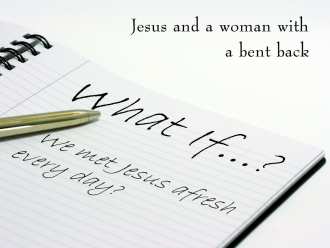 Jesus and a woman with
a bent back
What If....?
We met Jesus afresh
every day?